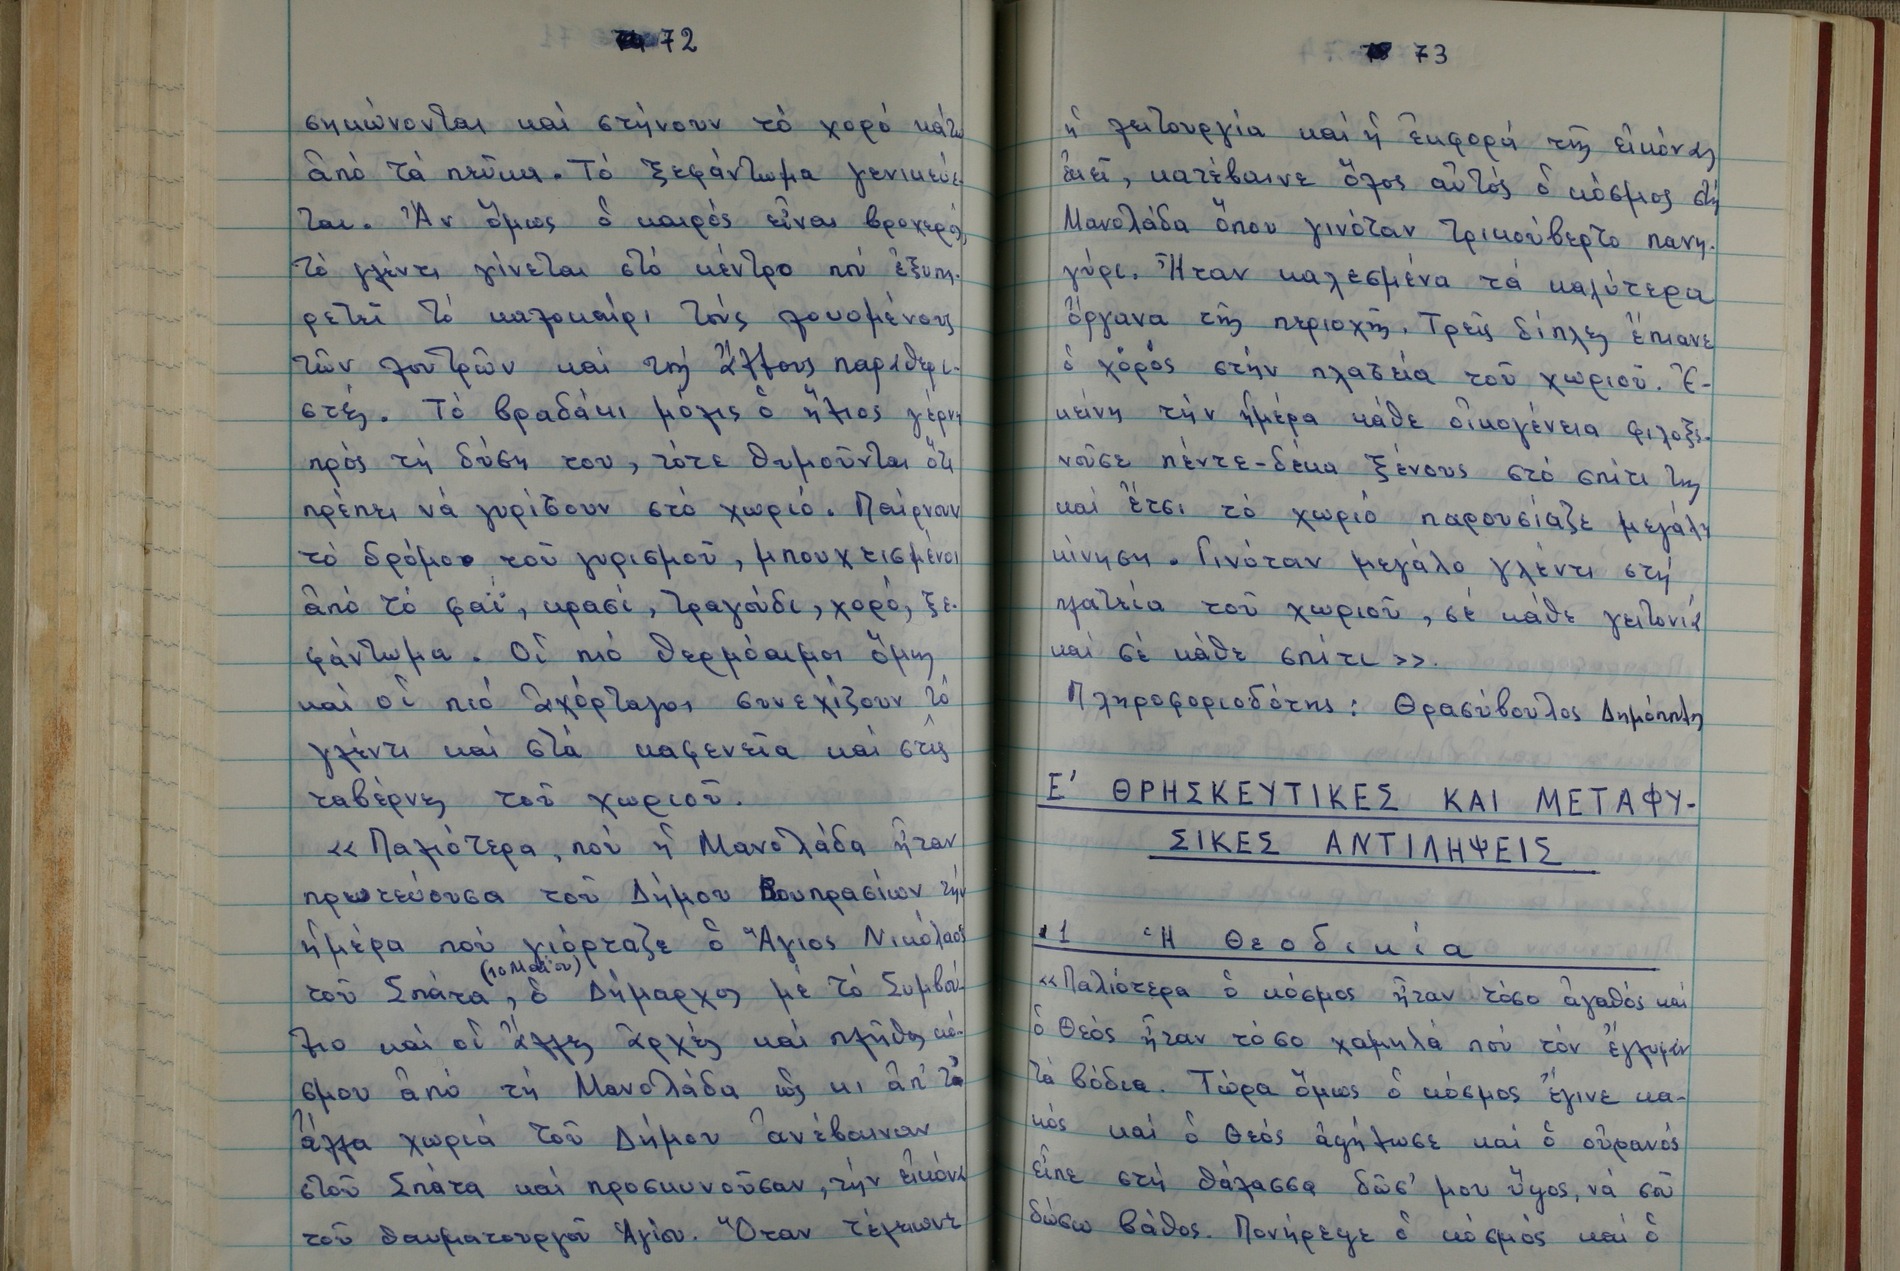 72
σηκώνονται καί στήνουν τό χορό κάτω
ἀπό τά πεῦκα. Τό ξεφάντωμα γενικεύε-
ται. Ἄν ὅμως ὁ καιρός εἶναι βροχερός,
τό γλέντι γίνεται στό κέντρο πού ἐξυπη-
ρετεῖ τό καλοκαίρι τούς λουομένους
τῶν λουτρῶν καί τούς ἄλλους παραθερι-
στές. Τό βραδάκι μόλις ὁ ἥλιος γέρνη
πρός τή δύση του, τότε θυμοῦνται ὅτι
πρέπει νά γυρίσουν στό χωριό. Παίρνουν
τό δρόμο τοῦ γυρισμοῦ, μπουχτισμένοι
ἀπό τό φαΐ, κρασί, τραγούδι, χορό, ξε-
φάντωμα. Οἱ πιό θερμόαιμοι ὅμως
καί οἱ πιό ἀχόρταγοι συνεχίζουν τό
γλέντι καί στά καφενεῖα καί στίς
ταβέρνες τοῦ χωριοῦ.
«Παλιότερα, πού ἡ Μανολάδα ἦταν
πρωτεύουσα τοῦ Δήμου Βουπρασίων τήν
ἡμέρα πού γιόρταζε ὁ Ἅγιος Νικόλαος
(10 Μαΐου)
τοῦ Σπάτα, ὁ Δήμαρχος μέ τό Συμβού-
λιο καί οἱ ἄλλες ἀρχές καί πλῆθος κό-
σμου ἀπό τή Μανολάδα ὡς κι ἀπ' τά
ἄλλα χωριά τοῦ Δήμου ἀνέβαιναν
στοῦ Σπάτα καί προσκυνοῦσαν, τήν εἰκόνα
τοῦ θαυματουργοῦ Ἁγίου. Ὅταν τέλειωνε
73
ἡ λειτουργία καί ἡ ἐκφορά τῆς εἰκόνας
ἐκεῖ, κατέβαινε ὅλος αὐτός ὁ κόσμος στή
Μανολάδα ὅπου γινόταν τρικούβερτο πανη-
γύρι. Ἦταν καλεσμένα τά καλύτερα
ὄργανα τῆς περιοχῆς. Τρεῖς δίπλες ἔπιανε
ὁ χορός στήν πλατεία τοῦ χωριοῦ. Ἐ-
κείνη τήν ἡμέρα κάθε οἰκογένεια φιλοξε-
νοῦσε πέντε-δέκα ξένους στό σπίτι της
καί ἔτσι τό χωριό παρουσίαζε μεγάλη
κίνηση. Γινόταν μεγάλο γλέντι στή
πλατεία τοῦ χωριοῦ, σέ κάθε γειτονιά
καί σέ κάθε σπίτι».
Πληροφοριοδότης: Θρασύβουλος
Ε' ΘΡΗΣΚΕΥΤΙΚΕΣ ΚΑΙ ΜΕΤΑΦΥ-
ΣΙΚΕΣ ΑΝΤΙΛΗΨΕΙΣ
1 Ἡ Θεοδικία
«Παλιότερα ὁ κόσμος ἦταν τόσο ἀγαθός καί
ὁ Θεός ἦταν τόσο χαμηλά πού τόν ἔγλυφαν
τά βόδια. Τώρα ὅμως ὁ κόσμος ἔγινε κα-
κός καί ὁ Θεός ἀψήλωσε καί ὁ οὐρανός
εἶπε στή θάλασσα δῶσ' μου ὕψος, νά σοῦ
δώσω βάθος. Πονήρεψε ὁ κόσμός καί ὁ